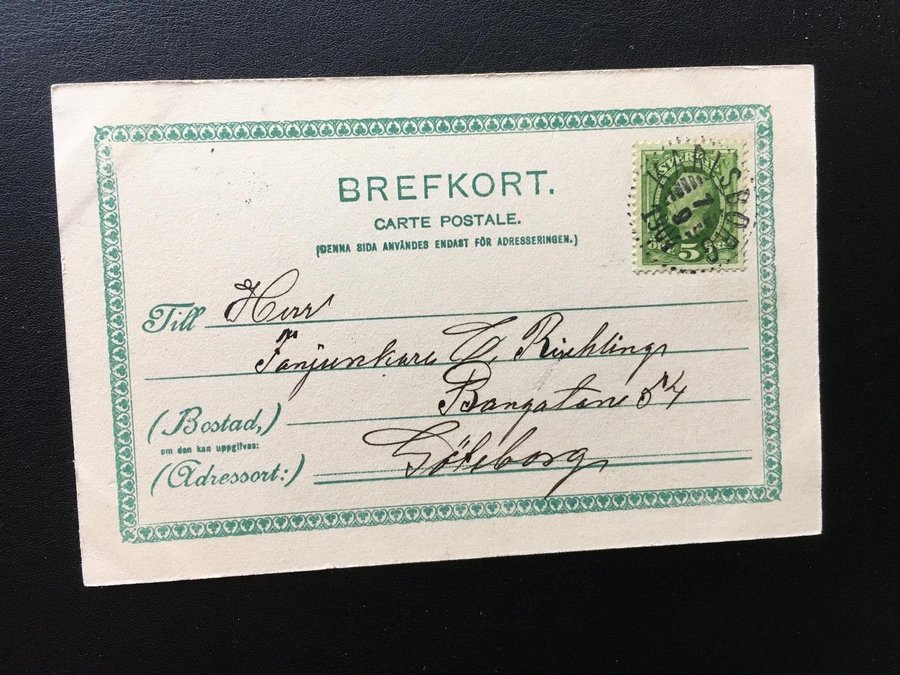 BREFKORT.
CARTE POSTALE.
(DENNA SIDA ANVÄNDES ENDAST FÖR ADRESSERINGEN.)
SVERIGE
KARLSBORG
5
Till Herr
Fanjunkare C Rischling
Bangatan 54
(Bostad,)
om den kan uppgifvas:
Göteborg
(Adressort:)